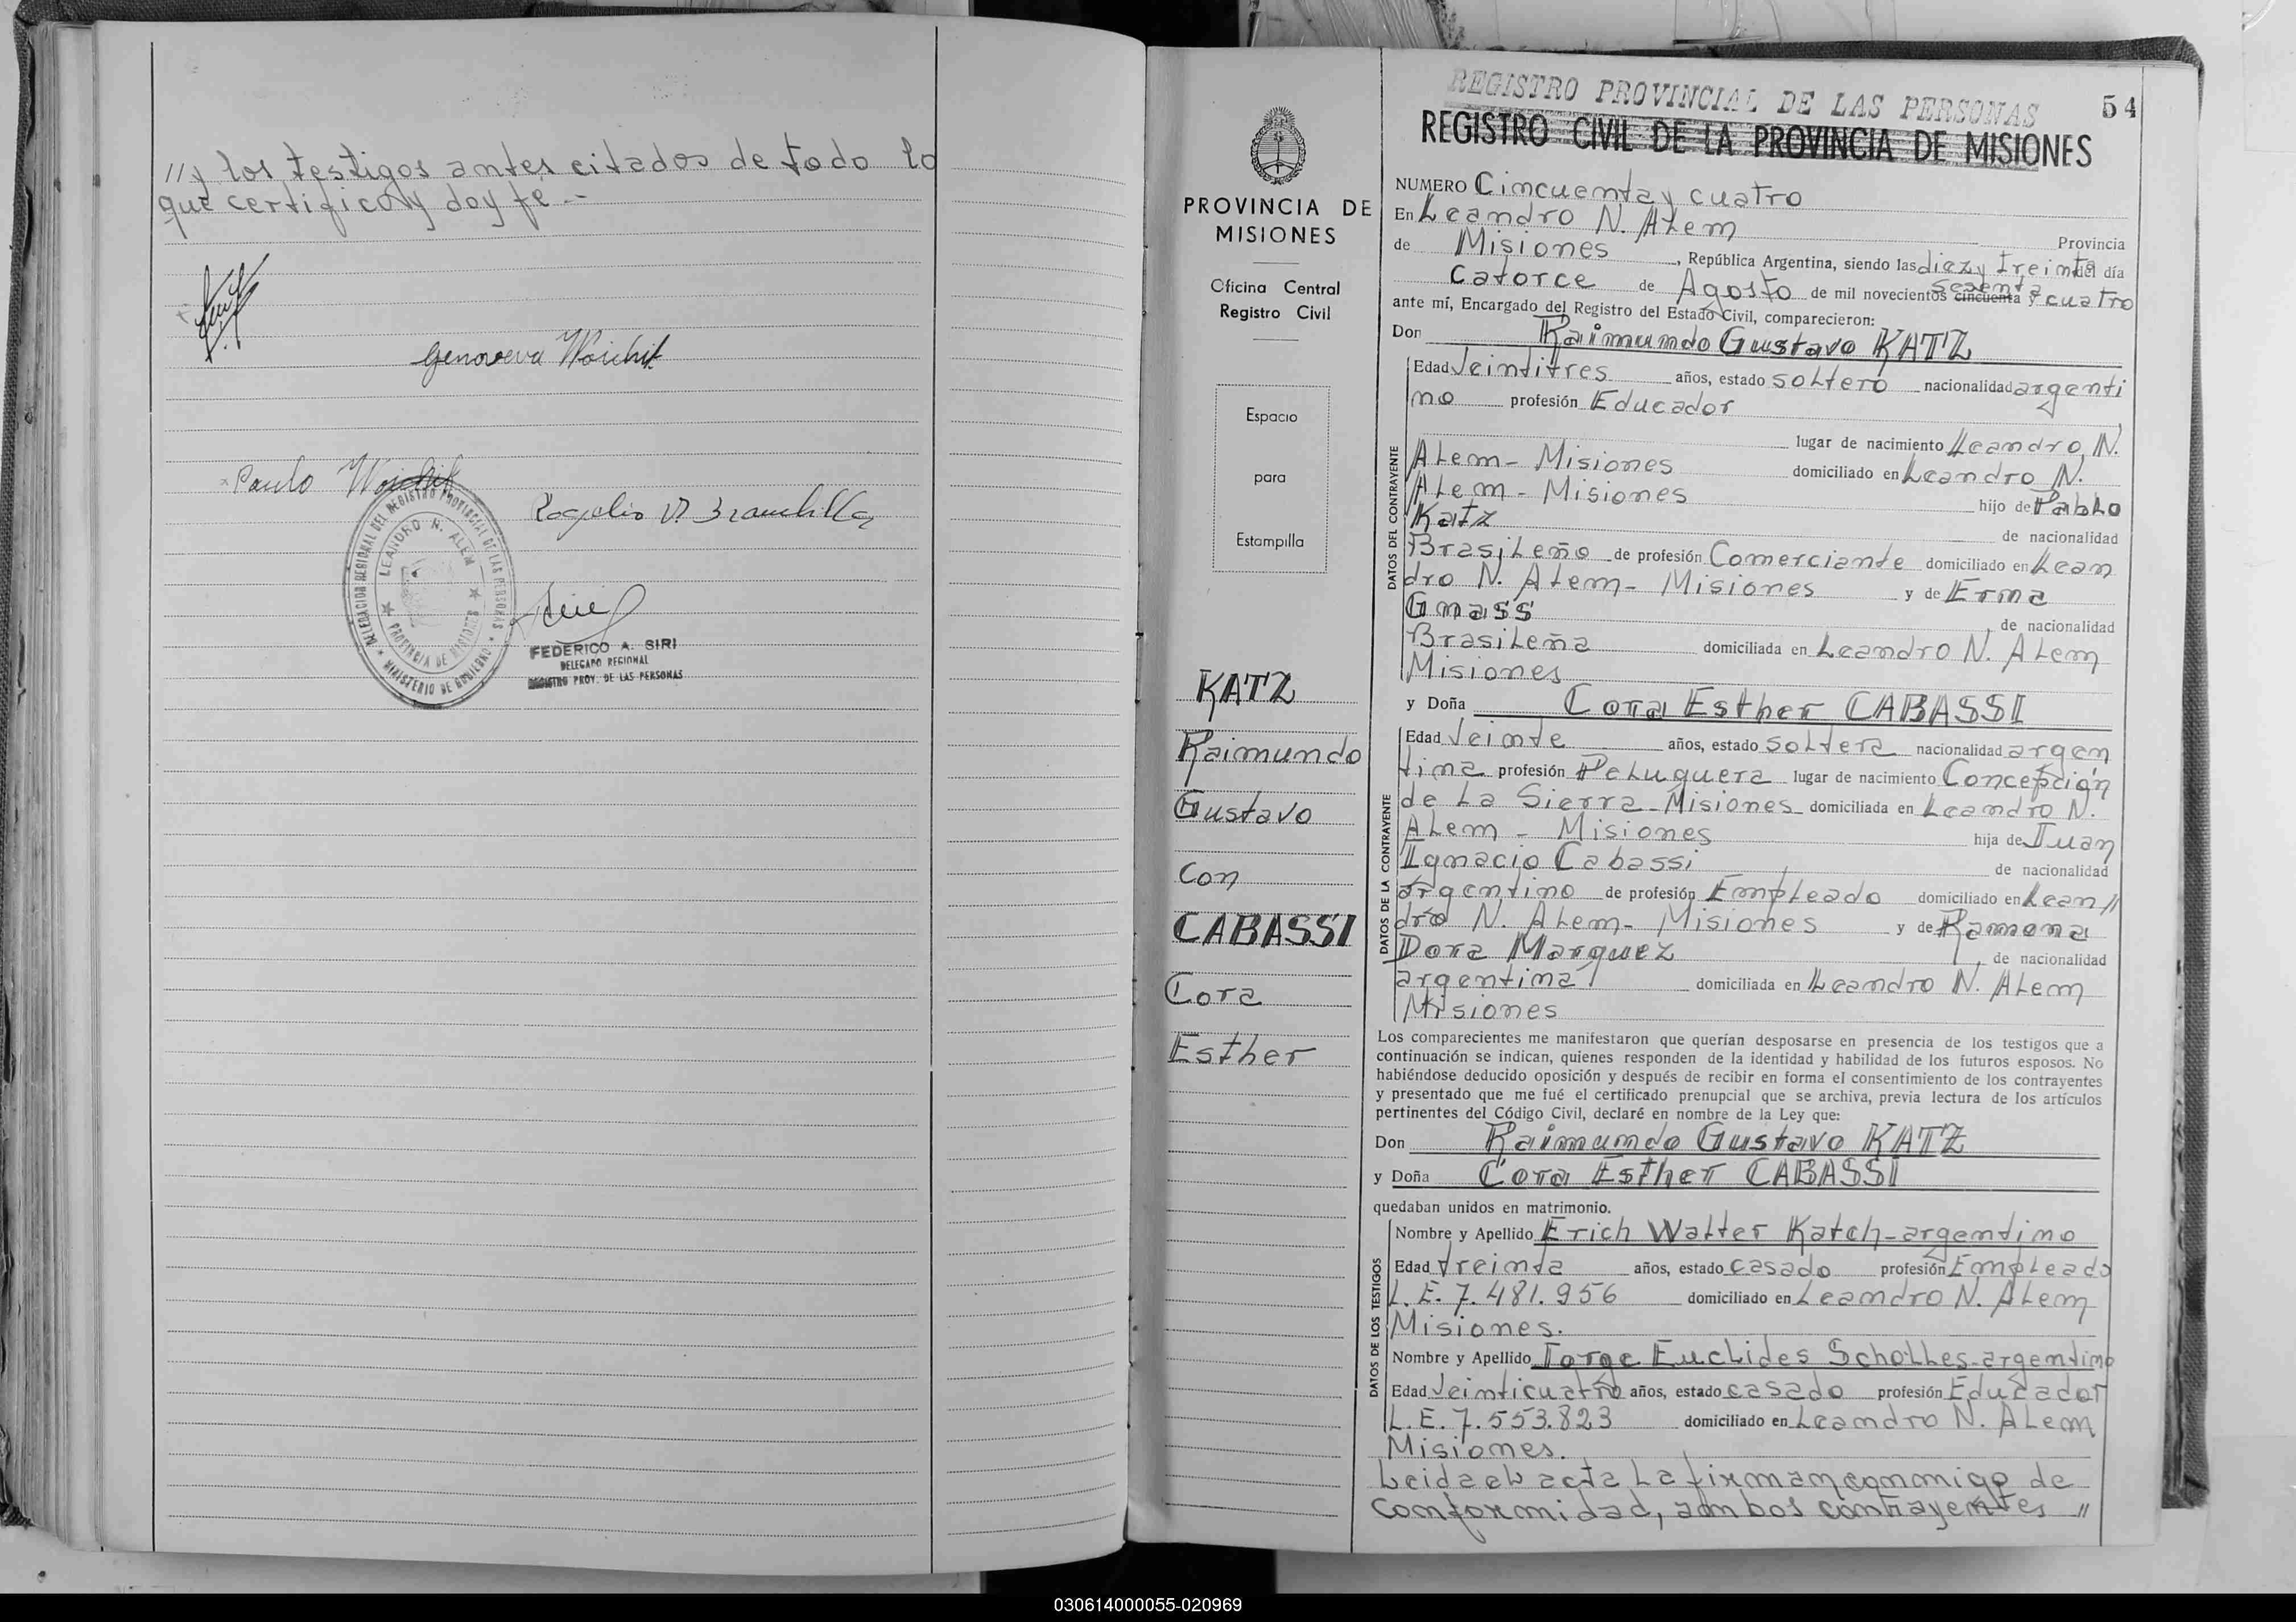 //y los testigos antes citados de todo lo
que certifico y doy fé.-
Genoveva Woichik
Paulo Woichik
DELEGACION REGIONAL DEL REGISTRO PROVINCIAL DE LAS PERSONAS
LEANDRO N. ALEM
PROVINCIA DE MISIONES
MINISTERIO DE GOBIERNO
FEDERICO A. SIRI
DELEGADO REGIONAL
REGISTRO PROV. DE LAS PERSONAS
PROVINCIA DE
MISIONES
Oficina Central
Registro Civil
Espacio
para
Estampilla
KATZ
Raimundo
Gustavo
Con
CABASSI
Cora
Esther
REGISTRO PROVINCIAL DE LAS PERSONAS
54
REGISTRO CIVIL DE LA PROVINCIA DE MISIONES
NUMERO Cincuenta y cuatro
En Leandro N. Alem
Provincia
de Misiones, República Argentina, siendo las diez y treinta del día
catorce de Agosto de mil novecientos cincuenta sesenta y cuatro
ante mí, Encargado del Registro del Estado Civil, comparecieron:
Don Raimundo Gustavo KATZ
DATOS DEL CONTRAYENTE
Edad Veintitres años, estado soltero nacionalidad argenti
no profesión Educador
lugar de nacimiento Leandro N.
Alem- Misiones domiciliado en Leandro N.
Alem - Misiones hijo de Pablo
Katz de nacionalidad
Brasileño de profesión Comerciante domiciliado en Lean
dro N. Alem- Misiones y de Erna
Gnass, de nacionalidad
Brasileña domiciliada en Leandro N. Alem
Misiones
y Doña Cora Esther CABASSI
DATOS DE LA CONTRAYENTE
Edad Veinte años, estado soltera nacionalidad argen
tina profesión Peluquera lugar de nacimiento Concepción
de La Sierra-Misiones domiciliada en Leandro N.
Alem - Misiones hija de Juan
Ignacio Cabassi de nacionalidad
argentino de profesión Empleado domiciliado en Lean//
dro N. Alem- Misiones y de Ramona
Dora Marquez, de nacionalidad
argentina domiciliada en Leandro N. Alem
Misiones
Los comparecientes me manifestaron que querían desposarse en presencia de los testigos que a
continuación se indican, quienes responden de la identidad y habilidad de los futuros esposos. No
habiéndose deducido oposición y después de recibir en forma el consentimiento de los contrayentes
y presentado que me fué el certificado prenupcial que se archiva, previa lectura de los artículos
pertinentes del Código Civil, declaré en nombre de la Ley que:
Don Raimundo Gustavo KATZ
y Doña Cora Esther CABASSI
quedaban unidos en matrimonio.
DATOS DE LOS TESTIGOS
Nombre y Apellido Erich Walter Katch-argentino
Edad treinta años, estado casado profesión Empleado
L.E. 7.481.956 domiciliado en Leandro N. Alem
Misiones.
Nombre y Apellido Jorge Euclides Scholles-argentino
Edad Veinticuatro años, estado casado profesión Educador
L.E. 7.553.823 domiciliado en Leandro N. Alem
Misiones.
Leida el acta la firman conmigo de
conformidad, ambos contrayentes //
030614000055-020969